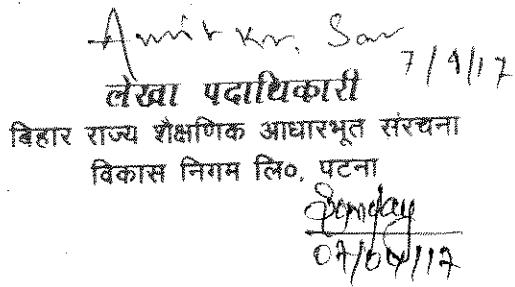 Amit Kr.
7/4/17
लेखा पदाधिकारी
बिहार राज्य शैक्षणिक आधारभूत संरचना
विकास निगम लि०, पटना
07/04/17